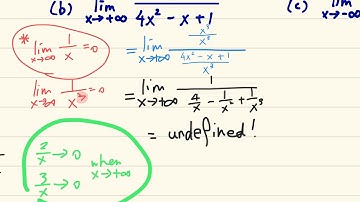 (b) lim x→+∞ 4x² - x + 1
(c) lim x→-∞
* lim x→∞ 1/x = 0
= lim x→+∞ (x³/x³) / ((4x² - x + 1)/x³)
lim x→∞ 1/x² = 0
= lim x→+∞ 1 / (4/x - 1/x² + 1/x³)
= undefined!
2/x → 0
3/x → 0
when x→+∞